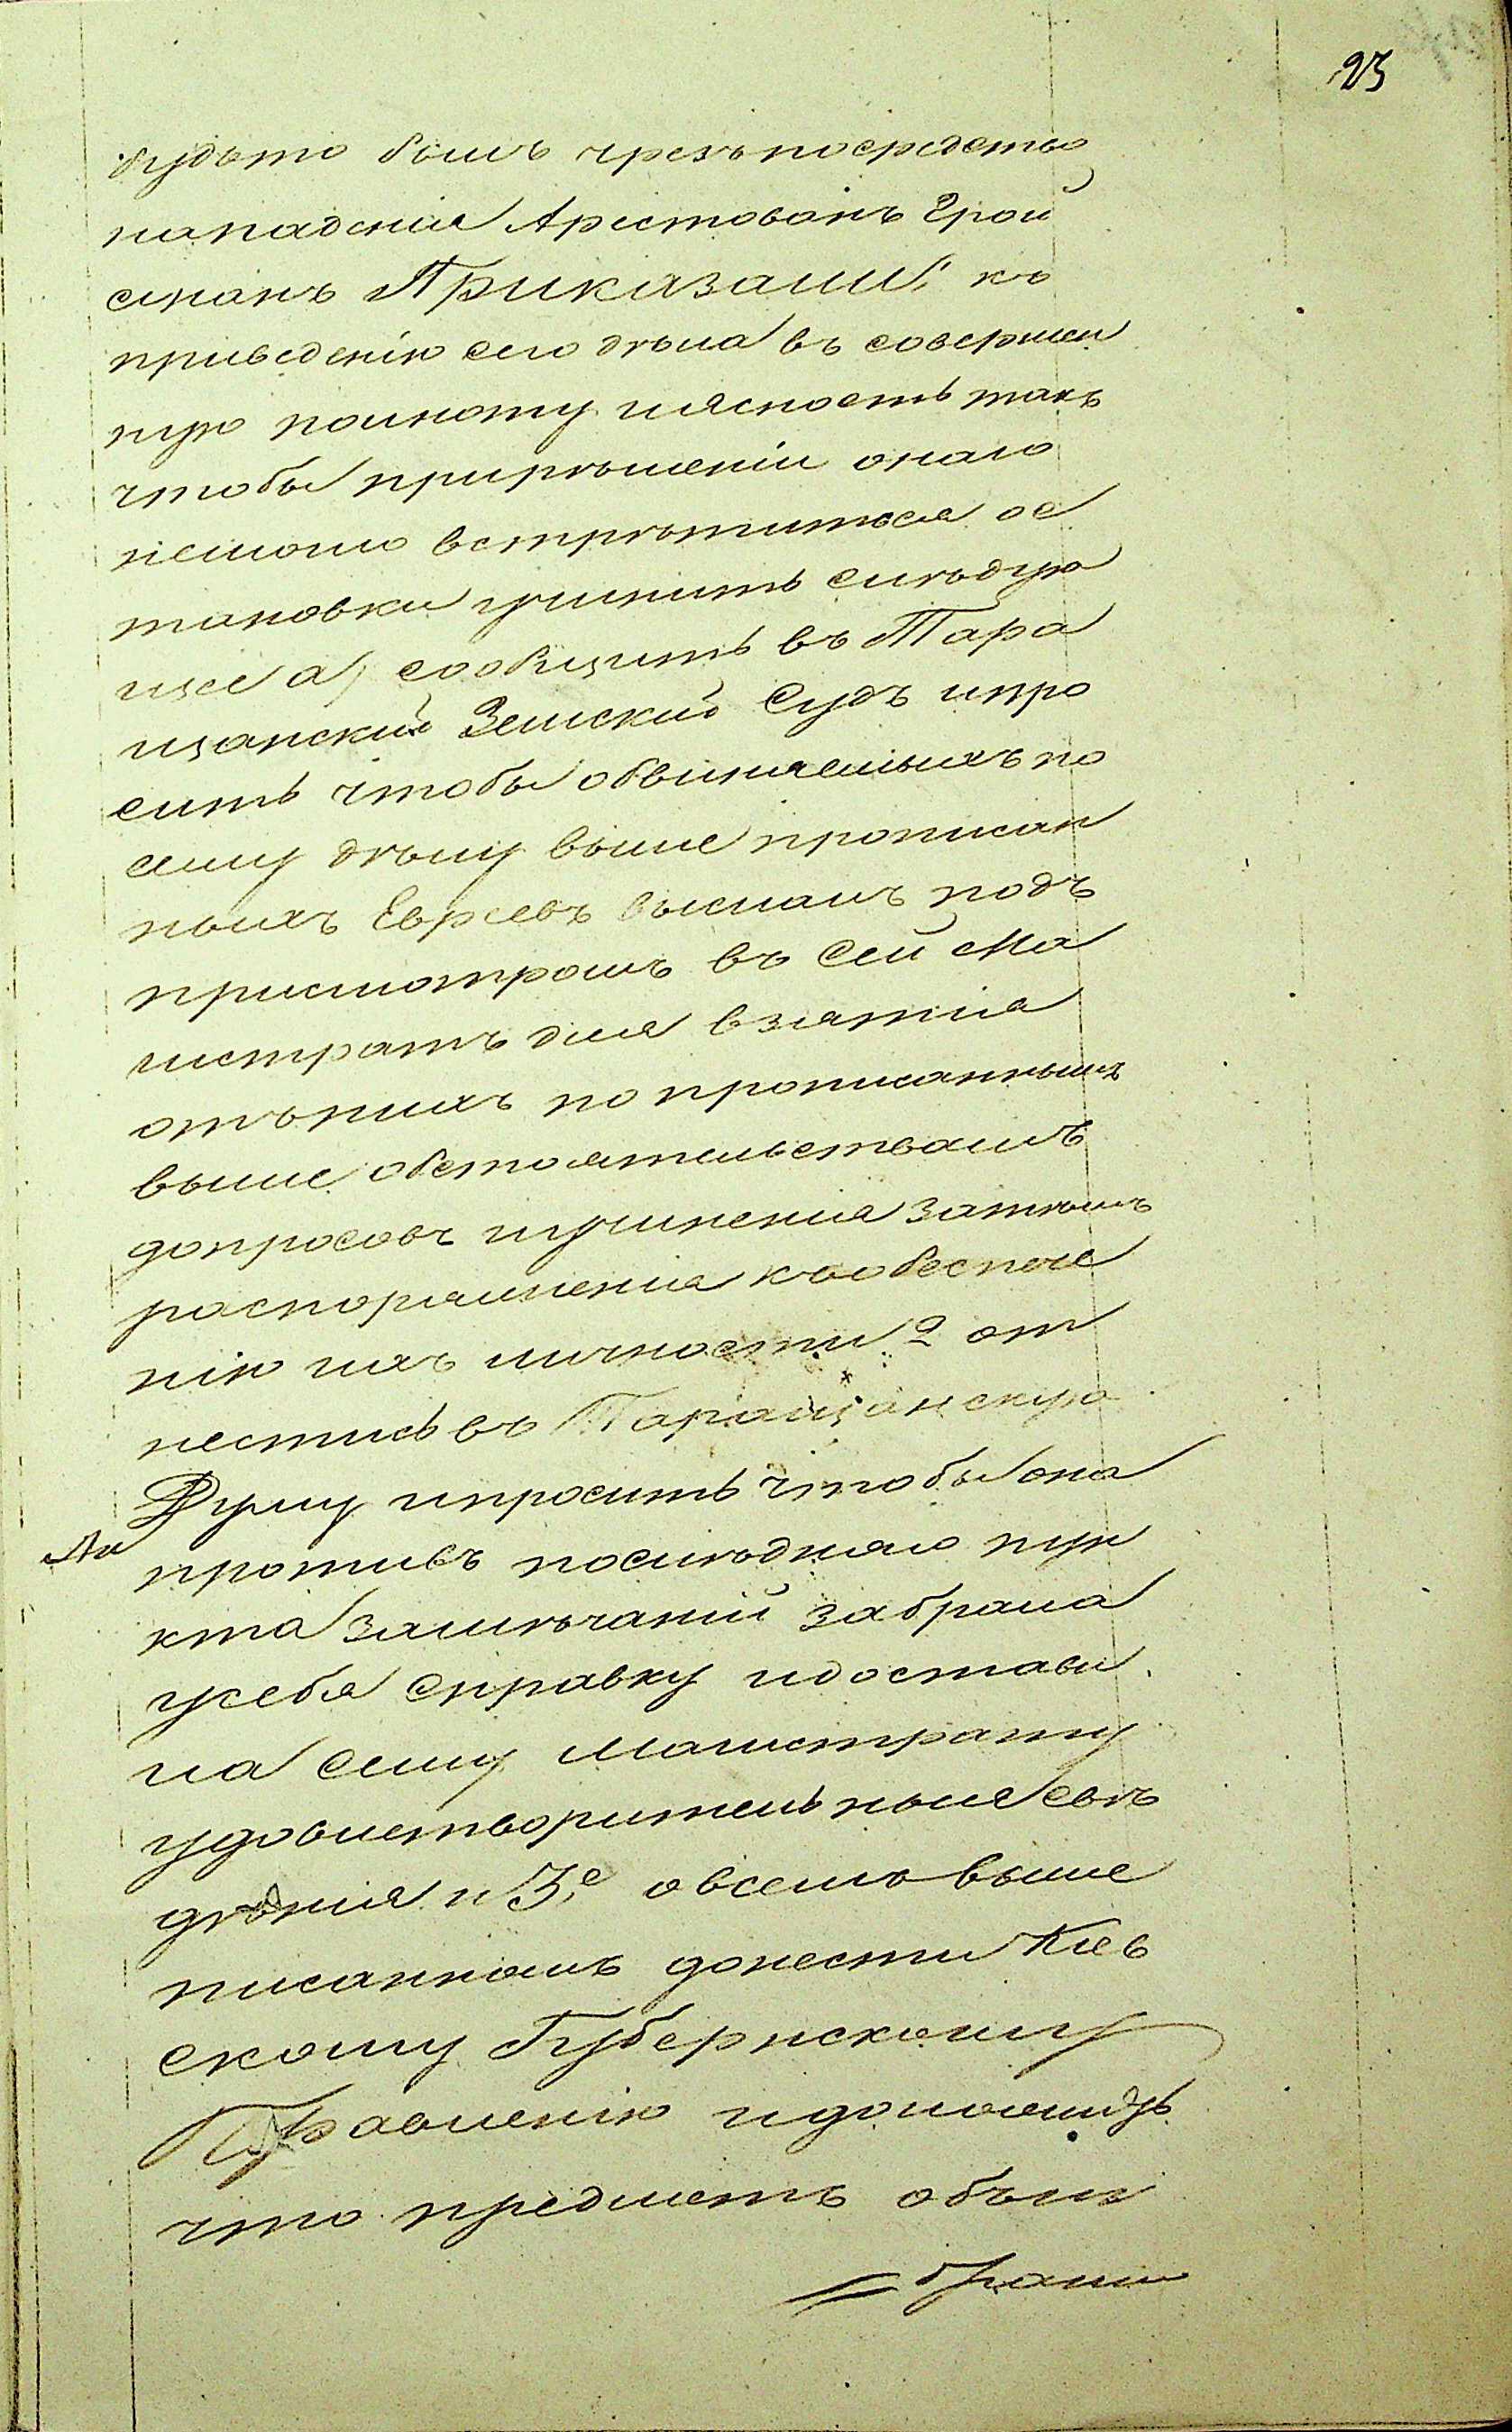 23
будьто былъ чрезъ посредство
нападенія Арестованъ Грой
сманъ Приказали: къ
приведенію сего дѣла въ совершен
ную полноту и ясность такъ
чтобы прирѣшеніи онаго
немогло встрѣтиться ос
тановки учинить слѣдую
щее а) сообщить въ Тара
щанскій Земскій Судъ ипро
сить чтобы обвиняемыхъ по
сему дѣлу выше прописан
ныхъ Евреевъ выслалъ подъ
присмотромъ въ Сей Ма
гистратъ для взятія
отъ нихъ по прописаннымъ
выше обстоятельствамъ
допросовъ иучиненія затѣмъ
распоряженія къ обеспече
нію ихъ личности 2 от
нестись въ Таращанскую
Думу ипросить чтобы она
противъ послѣдняго пун
кта замѣчаній забрала
усебя справку идостави
ла сему Магистрату
удовлетворительныя свѣ
дѣнія и 3е овсемъ выше
писанномъ донести Кіев
скому Губернскому
Правленію идоложить
что предметъ объиз
браніи